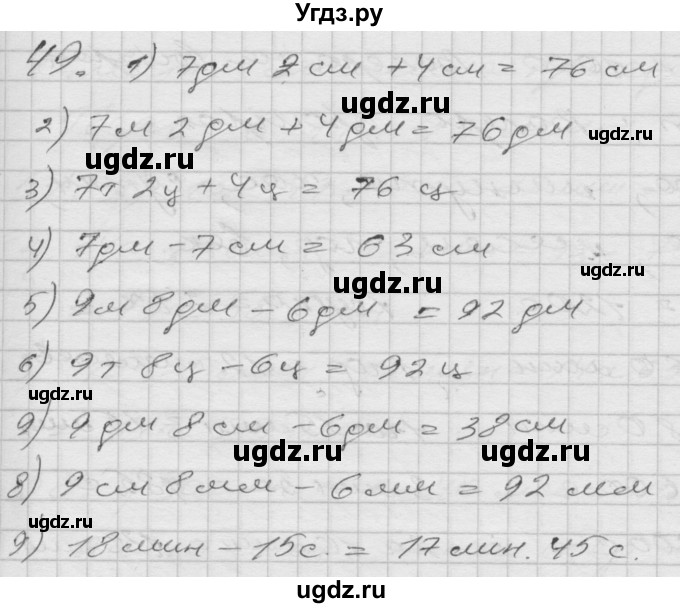 Угдз.ру
49. 1) 7дм 2см + 4см = 76 см
ugdz.ru
2) 7м 2дм + 4дм = 76дм
ugdz.ru
ugdz.ru
3) 7т 2ц + 4ц = 76 ц
4) 7дм - 7см = 63 см
ugdz.ru
ugdz.ru
5) 9м 8дм - 6дм = 92 дм
6) 9т 8ц - 6ц = 92ц
ugdz.ru
ugdz.ru
9) 9дм 8см - 6дм = 38см
ugdz.ru
ugdz.ru
8) 9см 8мм - 6мм = 92 мм
ugdz.ru
9) 18мин - 15с. = 17мин. 45с.
ugdz.ru
ugdz.ru